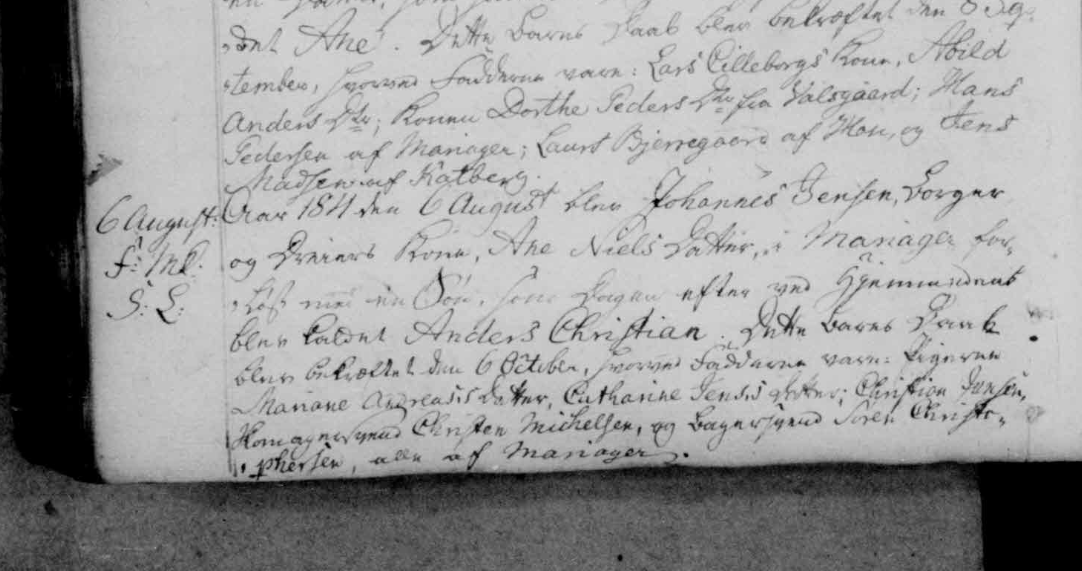 det Ane. Dette Barns Daab blev bekræftet den 8 Sep-
tember, hvorved Fadderne vare: Lars Lilleborgs Kone, Abild
Anders Dtr; Konen Dorthe Peders Dtr fra Valsgaard; Hans
Pedersen af Mariager; Laurs Bjerregaard af Hou, og Jens
Madsen af Katberg.
6 August:
F: Mk.
S: L:
Aar 1811 den 6 August blev Johannes Jensen, Borger
og Dreiers Kone, Ane Niels Datter, i Mariager for-
løst med en Søn, som Dagen efter ved Hjemmedaab
blev kaldet Anders Christian. Dette Barns Daab
blev bekræftet den 6 October, hvorved Fadderne vare: Pigerne
Mariane Andreasis Datter, Catharine Jensis Datter; Christian Jensen,
Skomagersvend Christen Michelsen, og Bagersvend Søren Christo-
phersen, alle af Mariager.